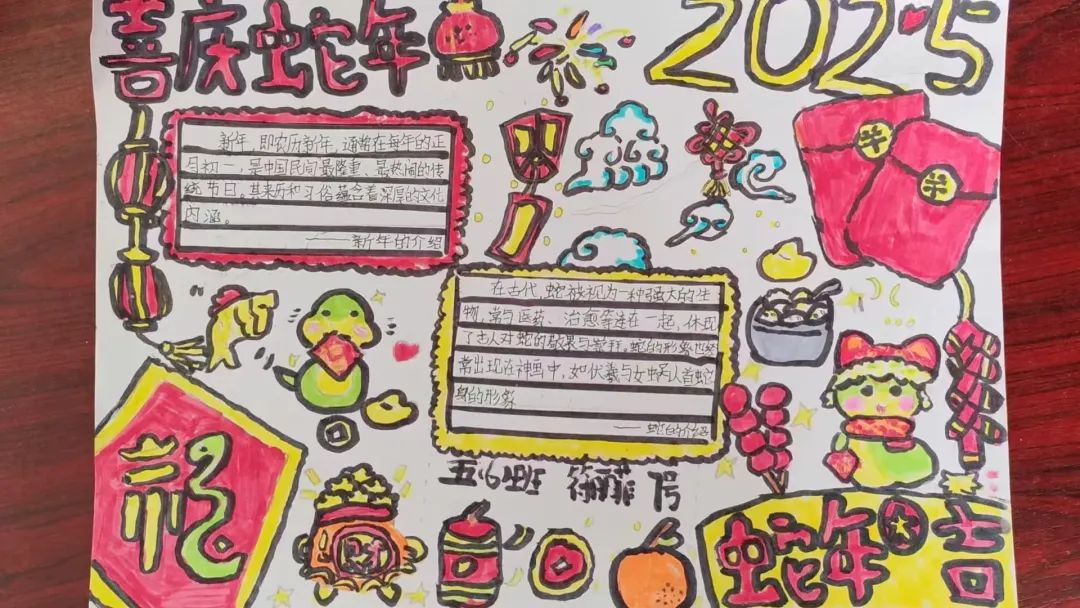 喜庆蛇年
2025
新年，即农历新年，通常在每年的正
月初一，是中国民间最隆重、最热闹的传
统节日。其来历和习俗蕴含着深厚的文化
内涵。
——新年的介绍
在古代，蛇被视为一种强大的生
物，常与医药、治愈等连在一起，体现
了古人对蛇的敬畏与崇拜。蛇的形象也经
常出现在神画中，如伏羲与女娲以首蛇
身的形象
——蛇的介绍
福
五.6班 符 菲 1号
财
蛇年大吉